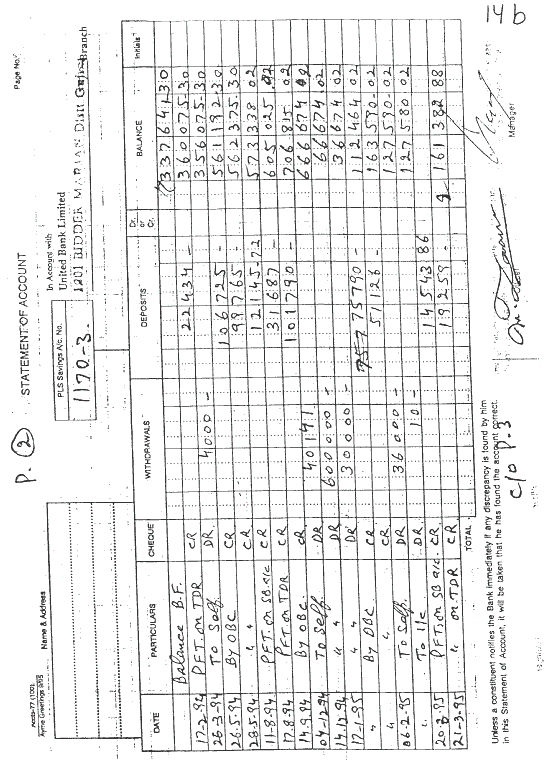 14 b
P. (2)
STATEMENT OF ACCOUNT
Page No.
Accts-77 (100)
Name & Address
PLS Savings A/c. No.
1170-3-
In Account with
United Bank Limited
1201 BIDDER MARIAN Distt Gujrat Branch
DATE PARTICULARS CHEQUE WITHDRAWALS DEPOSITS Dr. or Cr. BALANCE Initials
Balance B.F. CR 337641.30
17-2-94 PFT. on TDR CR 22434 - 360075-30
26-3-94 To Self DR 4000 - 356075-30
26-5-94 By OBC CR 106725 - 561192-30
28-5-94 " " CR 99765 - 562375-30
11-8-94 PFT. on SB a/c CR 12145-72 573338 02
17-8-94 PFT. on TDR CR 31687 - 605025.02
14-9-94 By OBC. CR 101790 - 706815 02
04-12-94 To Self DR 40141 666674 02
14-12-94 " " DR 600000 - 66674.02
DR 30000 - 36674 02
17-1-95 By OBC CR 75790 - 112464 02
" " CR 51126 - 163590-02
06-2-95 To Self DR 36000 - 127590-02
" To I/c DR 10 - 127580 02
20-3-95 PFT. on SB a/c. CR 14543 86
21-3-95 " on TDR CR 19259 - 161382 88
TOTAL
Unless a constituent notifies the Bank immediately if any discrepancy is found by him
in this Statement of Account, it will be taken that he has found the account correct.
C/o P.3
Manager